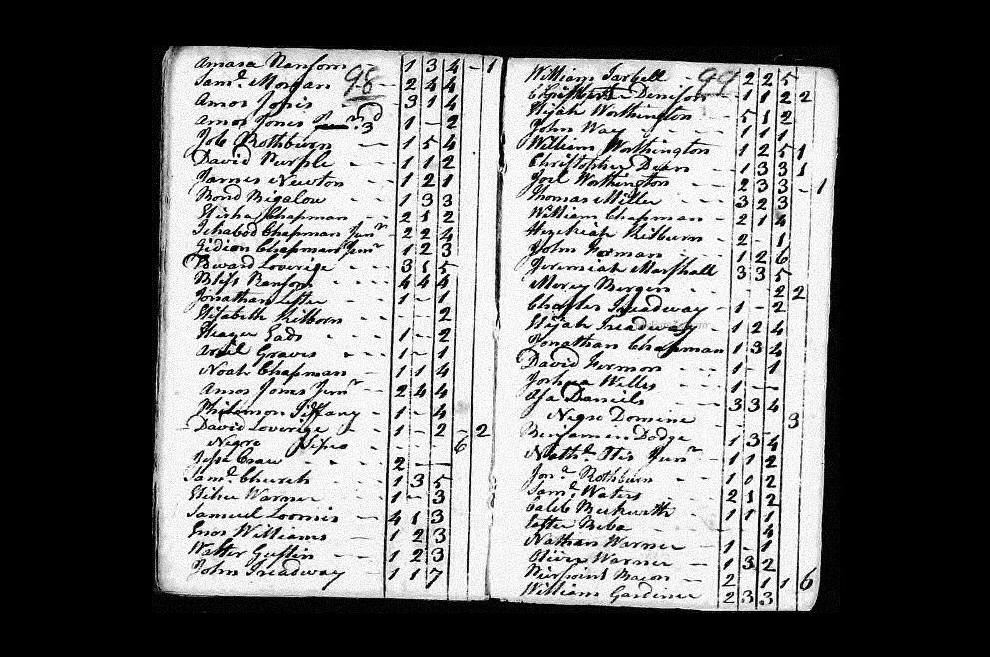 98
Amasa Ransom 1 3 4 - 1
Sam.l Morgan - 2 4 4
Amos Jonis 3 1 4
Amos Jones 3.d 1 - 2
Job Rothburn - 1 5 4
David Purple - - 1 1 2
James Newton - - 1 2 1
Bond Bigalow - - 1 3 3
Elisha Chapman - - 2 1 2
Ichabod Chapman Jun.r - 2 2 4
Gideon Chapman Jun.r 1 2 3
Loverige - - - 3 1 5
Bliss Ransom - - - - 4 4 4
Jonathan Lester - - 1 - 1
Elisabeth Kilborn - - - - 2
Eleazer Eads - - - 1 - 2
Graves - - - 1 - 1
Noah Chapman - - - 1 1 4
Amos Jones Jun.r - 2 4 4
Philemon Tiffany - 1 - 4
David Loverige - - 1 - 2 - 2
Negro - - - - 6
Jesse Craw - - - 2 - -
Sam.l Church - - - 1 3 5
Elihu Warner - - - 1 - 3
Samuel Loomis - - 4 1 3
Enos Williams - - - 1 2 3
Walter Guslin - - - 1 2 3
John Treadway - - 1 1 7
99
William Tarbell - 2 2 5
Christopher Denison - 1 1 2 2
Elijah Worthington - 5 1 2
John Way - - - 1 1 1
William Worthington 1 2 5 1
Christopher Dean - - 1 3 3 1
Joel Worthington - - 2 3 3 - 1
Thomas Miller - - - 3 2 3
William Chapman - - 2 1 4
Hezekiah Kilburn - - 2 - 1
John Forman - - - - 1 2 6
Jeremiah Marshall 3 3 5
Mercy Burgen - - - - 2 2
Charles Treadway - - 1 - 2
Elijah Treadway - - 1 2 4
Jonathan Chapman 1 3 4
David Formon - - - 1 - 1
Joshua Willes - - - 1 - -
Asa Daniels - - - 3 3 4
Negro Domine - - - 3
Benjamen Dodge - - 1 3 4
Nath.l Otis Jun.r - - 1 1 2
Jon.a Rothburn - - - 1 0 2
Sam.l Waters - - - 2 1 2
Caleb Beckwith - - 1 1 1
Ester Beba - - - - 4
Nathan Warner - - 1 - 1
Oliver Warner - - - 1 3 2
Pierpoint Bacon - - 2 1 1 6
William Gardiner - 2 3 3